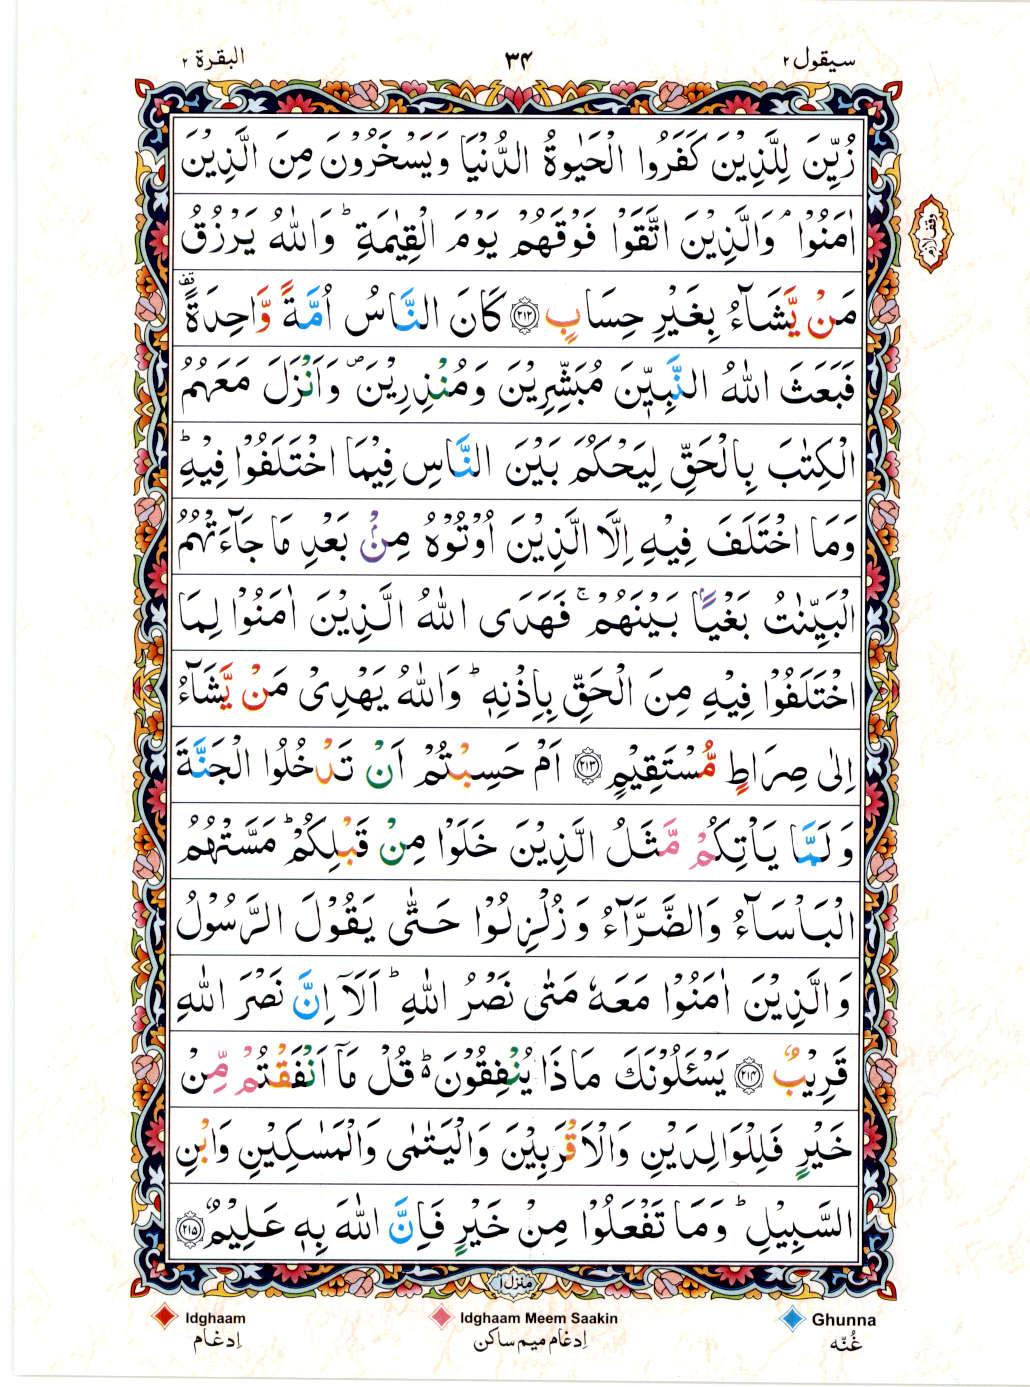 سيقول ٢ ٣٤ البقرة ٢
زُيِّنَ لِلَّذِيْنَ كَفَرُوا الْحَيٰوةُ الدُّنْيَا وَيَسْخَرُوْنَ مِنَ الَّذِيْنَ
اٰمَنُوْا ۘ وَالَّذِيْنَ اتَّقَوْا فَوْقَهُمْ يَوْمَ الْقِيٰمَةِ ؕ وَاللّٰهُ يَرْزُقُ
وقف لازم
مَنْ يَّشَآءُ بِغَيْرِ حِسَابٍ ﴿٢١٢﴾ كَانَ النَّاسُ اُمَّةً وَّاحِدَةً ۟قف
فَبَعَثَ اللّٰهُ النَّبِيّٖنَ مُبَشِّرِيْنَ وَمُنْذِرِيْنَ ۪ وَاَنْزَلَ مَعَهُمُ
الْكِتٰبَ بِالْحَقِّ لِيَحْكُمَ بَيْنَ النَّاسِ فِيْمَا اخْتَلَفُوْا فِيْهِ ؕ
وَمَا اخْتَلَفَ فِيْهِ اِلَّا الَّذِيْنَ اُوْتُوْهُ مِنْۢ بَعْدِ مَا جَآءَتْهُمُ
الْبَيِّنٰتُ بَغْيًۢا بَيْنَهُمْ ۚ فَهَدَى اللّٰهُ الَّذِيْنَ اٰمَنُوْا لِمَا
اخْتَلَفُوْا فِيْهِ مِنَ الْحَقِّ بِاِذْنِهٖ ؕ وَاللّٰهُ يَهْدِىْ مَنْ يَّشَآءُ
اِلٰى صِرَاطٍ مُّسْتَقِيْمٍ ﴿٢١٣﴾ اَمْ حَسِبْتُمْ اَنْ تَدْخُلُوا الْجَنَّةَ
وَلَمَّا يَاْتِكُمْ مَّثَلُ الَّذِيْنَ خَلَوْا مِنْ قَبْلِكُمْ ؕ مَسَّتْهُمُ
الْبَاْسَآءُ وَالضَّرَّآءُ وَزُلْزِلُوْا حَتّٰى يَقُوْلَ الرَّسُوْلُ
وَالَّذِيْنَ اٰمَنُوْا مَعَهٗ مَتٰى نَصْرُ اللّٰهِ ؕ اَلَاۤ اِنَّ نَصْرَ اللّٰهِ
قَرِيْبٌ ﴿٢١٤﴾ يَسْئَلُوْنَكَ مَاذَا يُنْفِقُوْنَ ؕ قُلْ مَاۤ اَنْفَقْتُمْ مِّنْ
خَيْرٍ فَلِلْوَالِدَيْنِ وَالْاَقْرَبِيْنَ وَالْيَتٰمٰى وَالْمَسٰكِيْنِ وَابْنِ
السَّبِيْلِ ؕ وَمَا تَفْعَلُوْا مِنْ خَيْرٍ فَاِنَّ اللّٰهَ بِهٖ عَلِيْمٌ ﴿٢١٥﴾
منزل ١
Idghaam Idghaam Meem Saakin Ghunna
اِدغام اِدغام ميم ساكن غُنّه